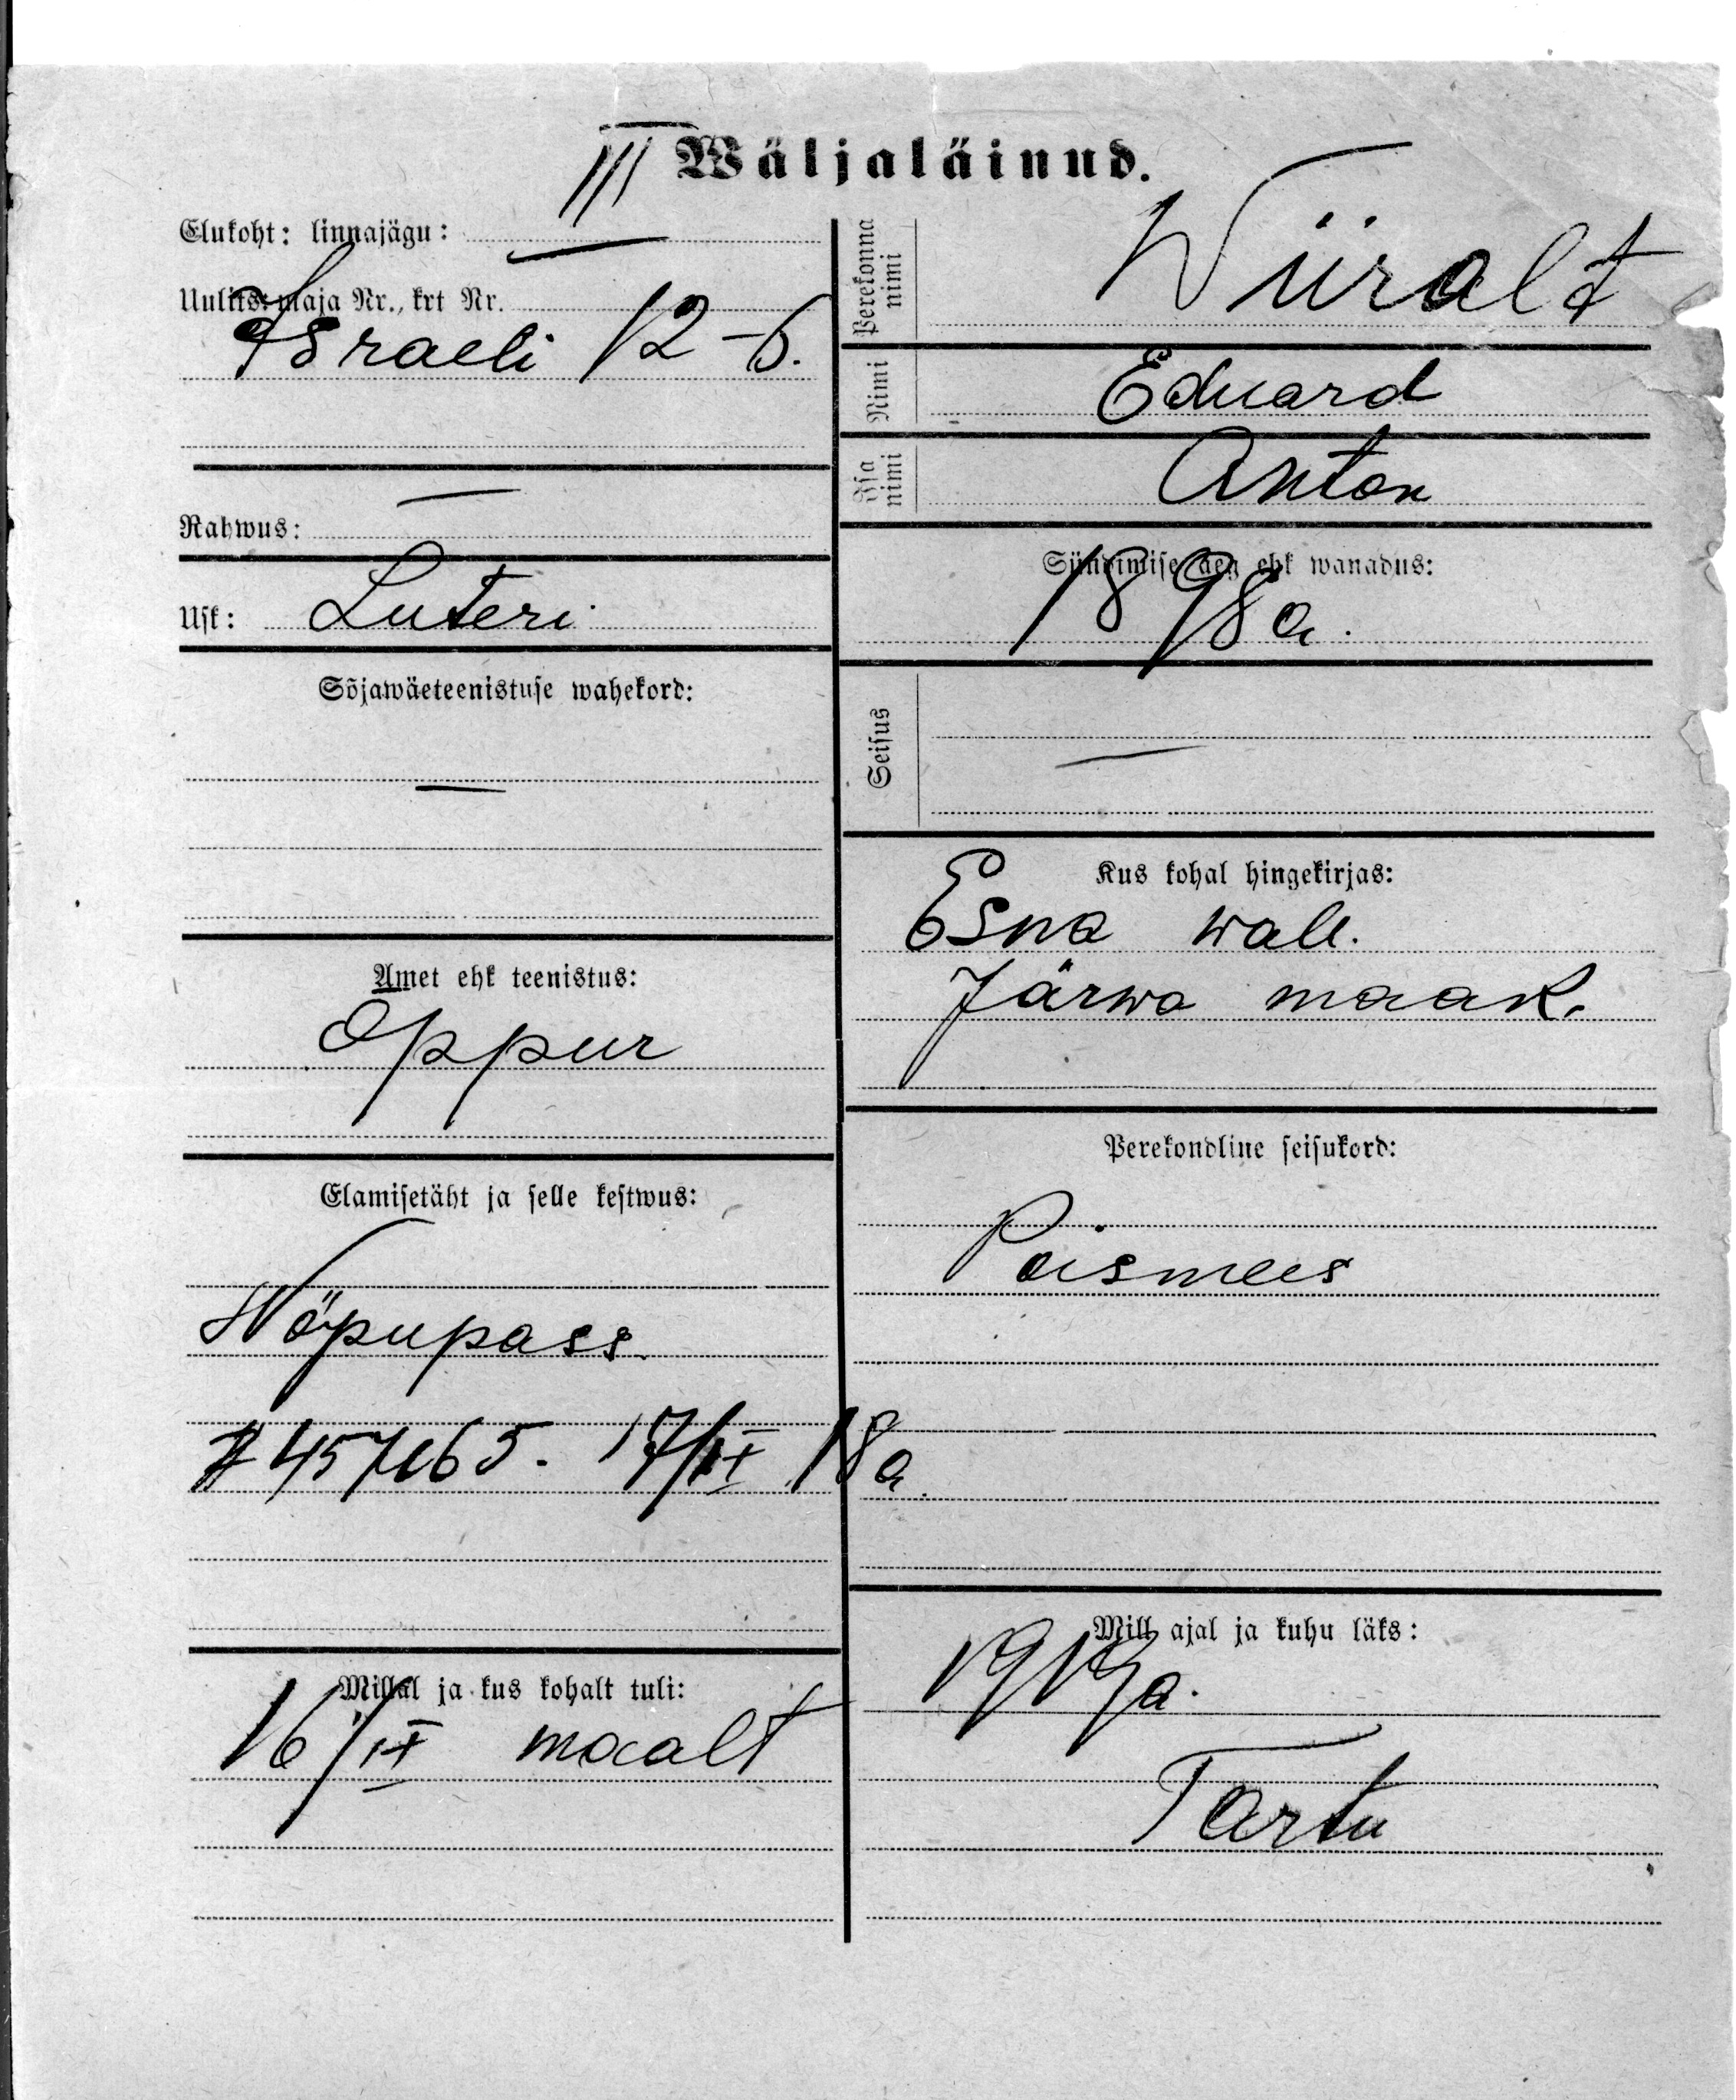 Wäljaläinud.
Elukoht: linnajägu: III
Uulits: maja Nr., krt Nr.
Israeli 12-6.
Rahwus: —
Usk: Luteri
Sõjawäeteenistuse wahekord:
—
Amet ehk teenistus:
Oppur
Elamisetäht ja selle kestwus:
Näpupass.
17/IX 18 a.
Millal ja kus kohalt tuli:
16/IX maalt
Perekonna nimi
Wiiralt
Nimi
Eduard
Isa nimi
Anton
Sündimise aeg ehk wanadus:
1898 a.
Seisus
—
Kus kohal hingekirjas:
Esna wall.
Järwa maak.
Perekondline seisukord:
Poismees
Mill ajal ja kuhu läks:
1919 a.
Tartu